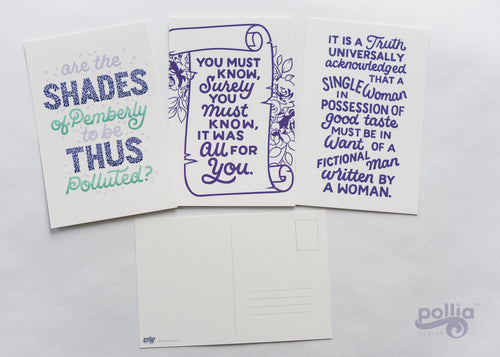 are the
SHADES
of Pemberly
to be
THUS
Polluted?
YOU MUST
KNOW,
Surely
YOU
Must
KNOW,
IT WAS
All FOR
You.
IT IS A Truth
UNIVERSALLY
acknowledged
THAT A
SINGLE Woman
IN
POSSESSION OF
good taste
MUST BE IN
Want, OF A
FICTIONAL man
written BY
A WOMAN.
pollia
DESIGN